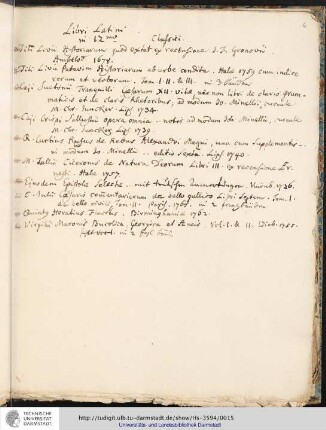 6
Libri Latini
in 12mo Classici.
Titi Livii Historiarum quod extat ex recensione I. F. Gronovii
Amstelod. 1678.
Titi Livii Patavini Historiarum ab urbe condita. Halae 1759 cum indice
rerum et verborum. Tom. I. II. & III. in 3
Caji Suetonii Tranquilli Caesarum XII. vitae, nec non libri de claris Gram-
maticis et de claris Rhetoribus, ad modum Jo. Minellii,
M. Chr. Juncker. Lips. 1734.
Caj. Crispi Sallustii opera omnia notis ad modum Jo. Minellii,
M. Chr. Juncker. Lips. 1739
Q. Curtius Rufus de Rebus Alexandri Magni, una cum Supplementis
in modum Jo Minellii editio sexta. Lips. 1740.
M. Tullii Ciceronis de Natura Deorum Libri III. ex recensione Er-
nesti. Halae 1757
Ejusdem Epistolae Selectae. mit Anmerkungen. 1736.
C. Julii Caesaris commentariorum de bello gallico Libri Septem. Tom. I.
de bello civili, Tom. II. 1755. in 2
Quintus Horatius Flaccus. Birminghamiae 1762.
Virgilii Maronis Bucolica, Georgica et Aeneis. Vol. I. & II. 1755.
in 2
TECHNISCHE
UNIVERSITÄT
DARMSTADT
http://tudigit.ulb.tu-darmstadt.de/show/Hs-3594/0015
Universitäts- und Landesbibliothek Darmstadt